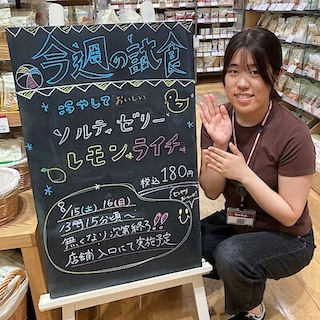 今週の試食
冷やしておいしい
ソルティゼリー
レモン味ライチ味
税込180円
8/15(土)、16(日)
13時15分頃〜
無くなり次第終了!!
店舗入口にて実施予定